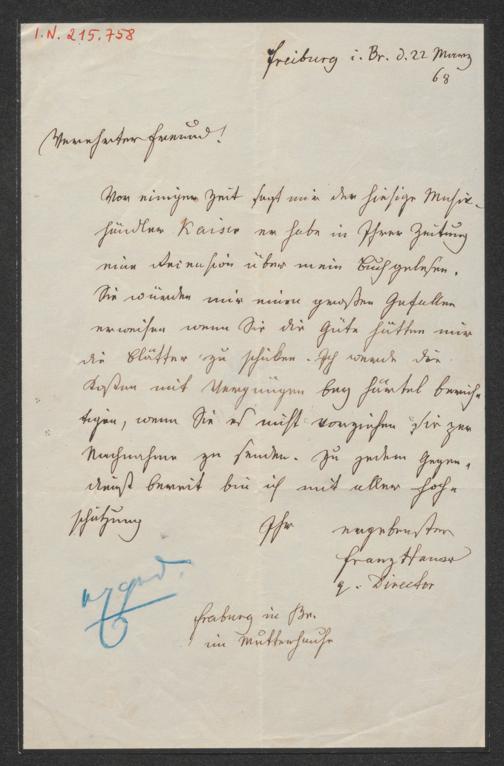 I.N. 215.758
Freiburg i. Br. d. 22 März
68
Verehrter Freund!
Vor einiger Zeit sagt mir der hiesige Musik-
händler Kaiser er habe in Ihrer Zeitung
eine Recension über mein Buch gelesen.
Sie würden mir einen großen Gefallen
erweisen wenn Sie die Güte hätten mir
die Blätter zu schicken. Ich werde die
Kosten mit Vergnügen bey Härtel berich-
tigen, wenn Sie es nicht vorziehen sie per
Nachnahme zu senden. Zu jedem Gegen-
dienst bereit bin ich mit aller Hoch-
schätzung Ihr ergebenster
Franz Hauser
q. Director
Freiburg in Br.
im Mutterhause